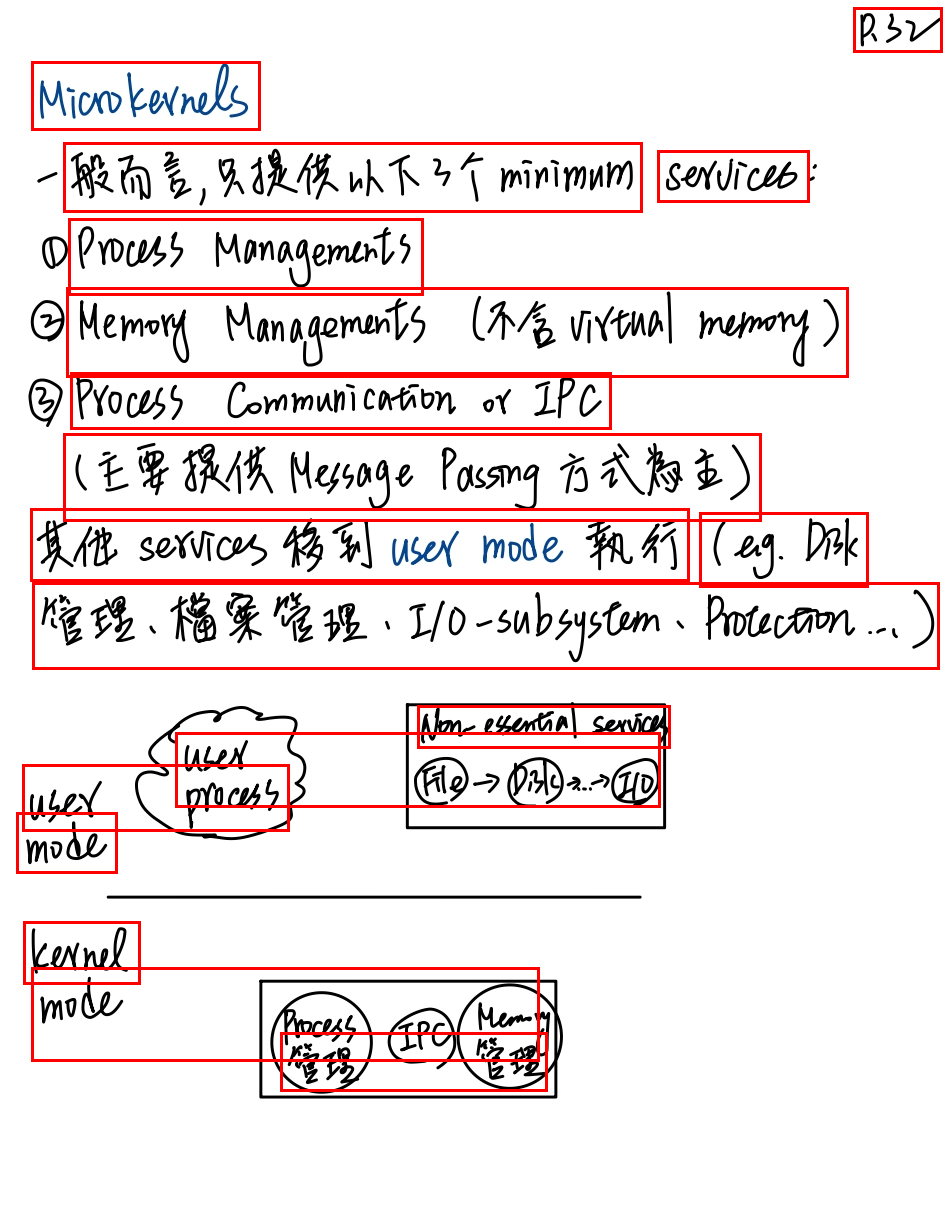 P.32
Microkernels
一般而言,只提供以下3个minimum services:
① Process Managements
② Memory Managements (不含virtual memory)
③ Process Communication or IPC
(主要提供 Message Passing 方式為主)
其他 services 移到 user mode 執行 (e.g. Disk
管理、檔案管理、I/O-subsystem、Protection...)
Non-essential services
user
process
File → Disk →...→ I/O
user
mode
kernel
mode
Process
管理
IPC
Memory
管理